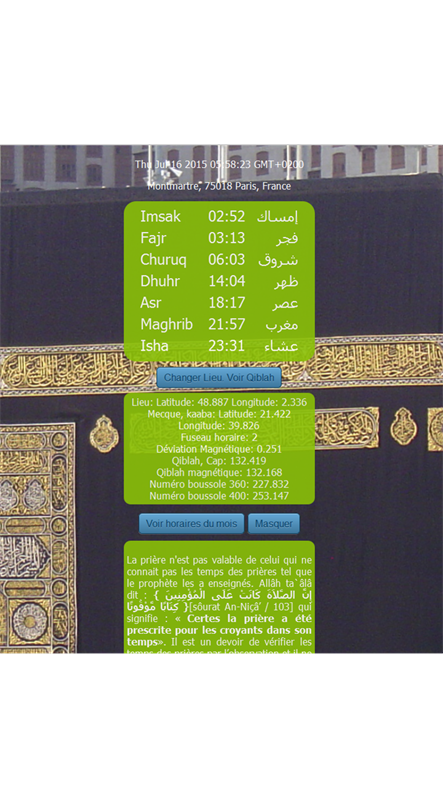 Thu Jul 16 2015 05:58:23 GMT+0200
Montmartre, 75018 Paris, France
Imsak 02:52 إمساك
Fajr 03:13 فجر
Churuq 06:03 شروق
Dhuhr 14:04 ظهر
Asr 18:17 عصر
Maghrib 21:57 مغرب
Isha 23:31 عشاء
Changer Lieu. Voir Qiblah
Lieu: Latitude: 48.887 Longitude: 2.336
Mecque, kaaba: Latitude: 21.422
Longitude: 39.826
Fuseau horaire: 2
Déviation Magnétique: 0.251
Qiblah, Cap: 132.419
Qiblah magnétique: 132.168
Numéro boussole 360: 227.832
Numéro boussole 400: 253.147
Voir horaires du mois Masquer
La prière n'est pas valable de celui qui ne
connait pas les temps des prières tel que
le prophète les a enseignés. Allâh ta`âlâ
dit : { إِنَّ الصَّلاَةَ كَانَتْ عَلَى الْمُؤْمِنِينَ
كِتَابًا مَّوْقُوتًا }[sôurat An-Niçâ' / 103] qui
signifie : « Certes la prière a été
prescrite pour les croyants dans son
temps». Il est un devoir de vérifier les
temps des prières par l'observation et il ne